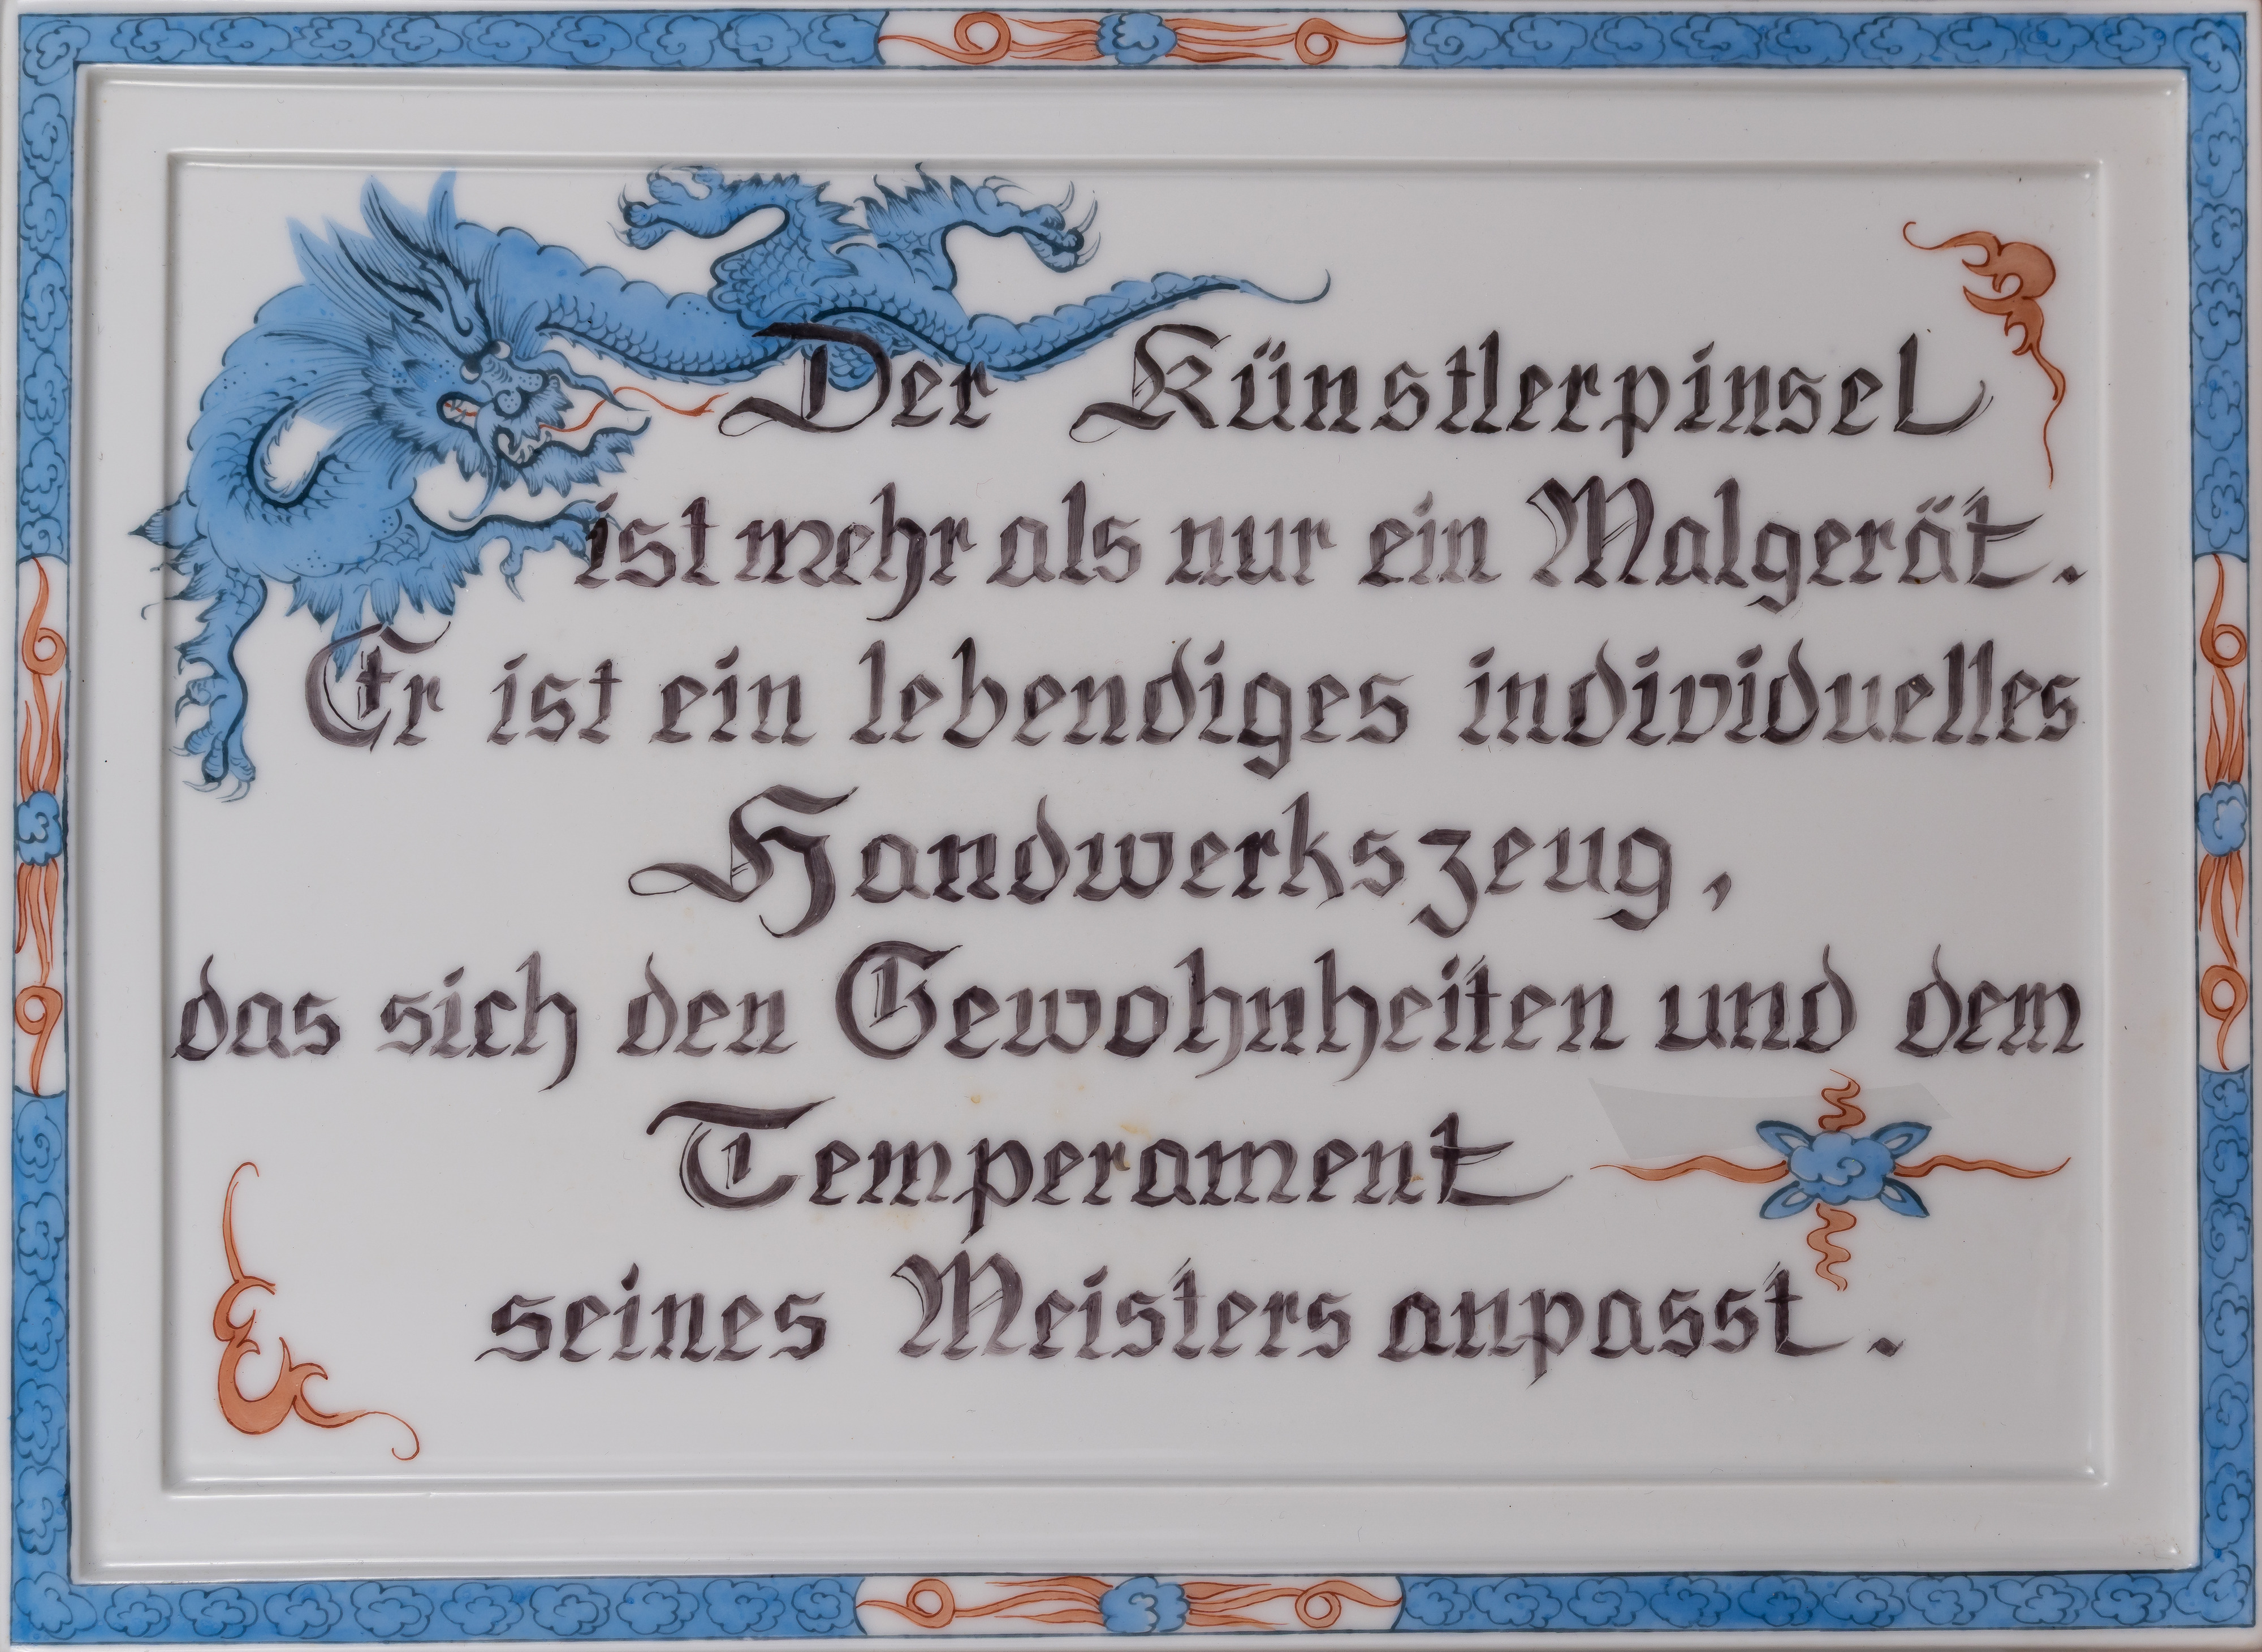 Der Künstlerpinsel
ist mehr als nur ein Malgerät.
Er ist ein lebendiges individuelles
Handwerkszeug,
das sich den Gewohnheiten und dem
Temperament
seines Meisters anpasst.